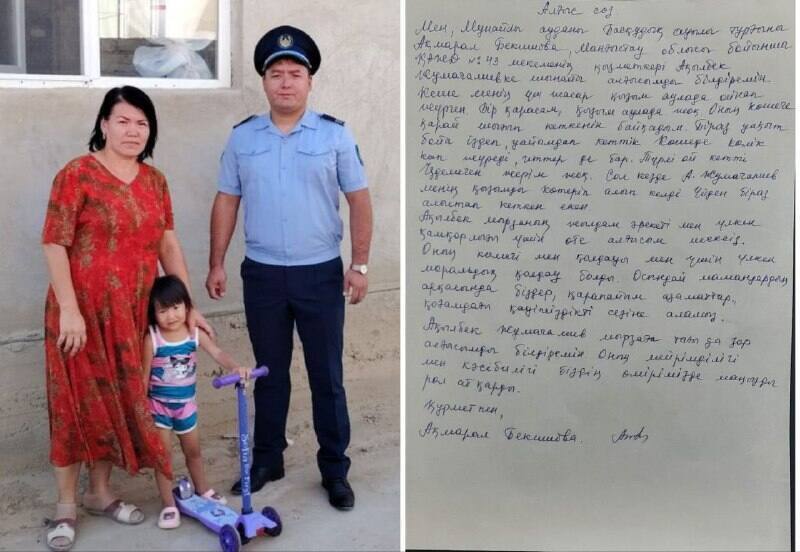 Алғыс сөз
Мен, Мұнайлы ауданы Басқұдық ауылы тұрғыны
Ақмарал Бекишова, Маңғыстау облысы бойынша
ҚАЖД №43 мекеменің қызметкері Ақылбек
Жұмағалиевке шынайы алғысымды білдіремін.
Кеше менің үш жасар қызым аулада ойнап
жүрген. Бір қарасам, қызым аулада жоқ. Оның көшеге
қарай шығып кеткенін байқадым. Біраз уақыт
бойы іздеп, уайымдап кеттік. Көшеде көлік
көп жүреді, иттер де бар. Түрлі ой кетті
Іздемеген жерім жоқ. Сол кезде А. Жұмағалиев
менің қызымды көтеріп алып келді. Үйден біраз
алыстап кеткен екен
Ақылбек мырзаның жылдам әрекеті мен үлкен
қамқорлығы үшін өте алғысым шексіз.
Оның көмегі мен қолдауы мен үшін үлкен
моральдық қолдау болды. Осындай мамандардың
арқасында біздер, қарапайым азаматтар,
қоғамдағы қауіпсіздікті сезіне аламыз.
Ақылбек Жұмағалиев мырзаға тағы да зор
алғысымды білдіремін. Оның мейірімділігі
мен кәсібилігі біздің өмірімізде маңызды
рөл атқарды.
Құрметпен,
Ақмарал Бекишова.